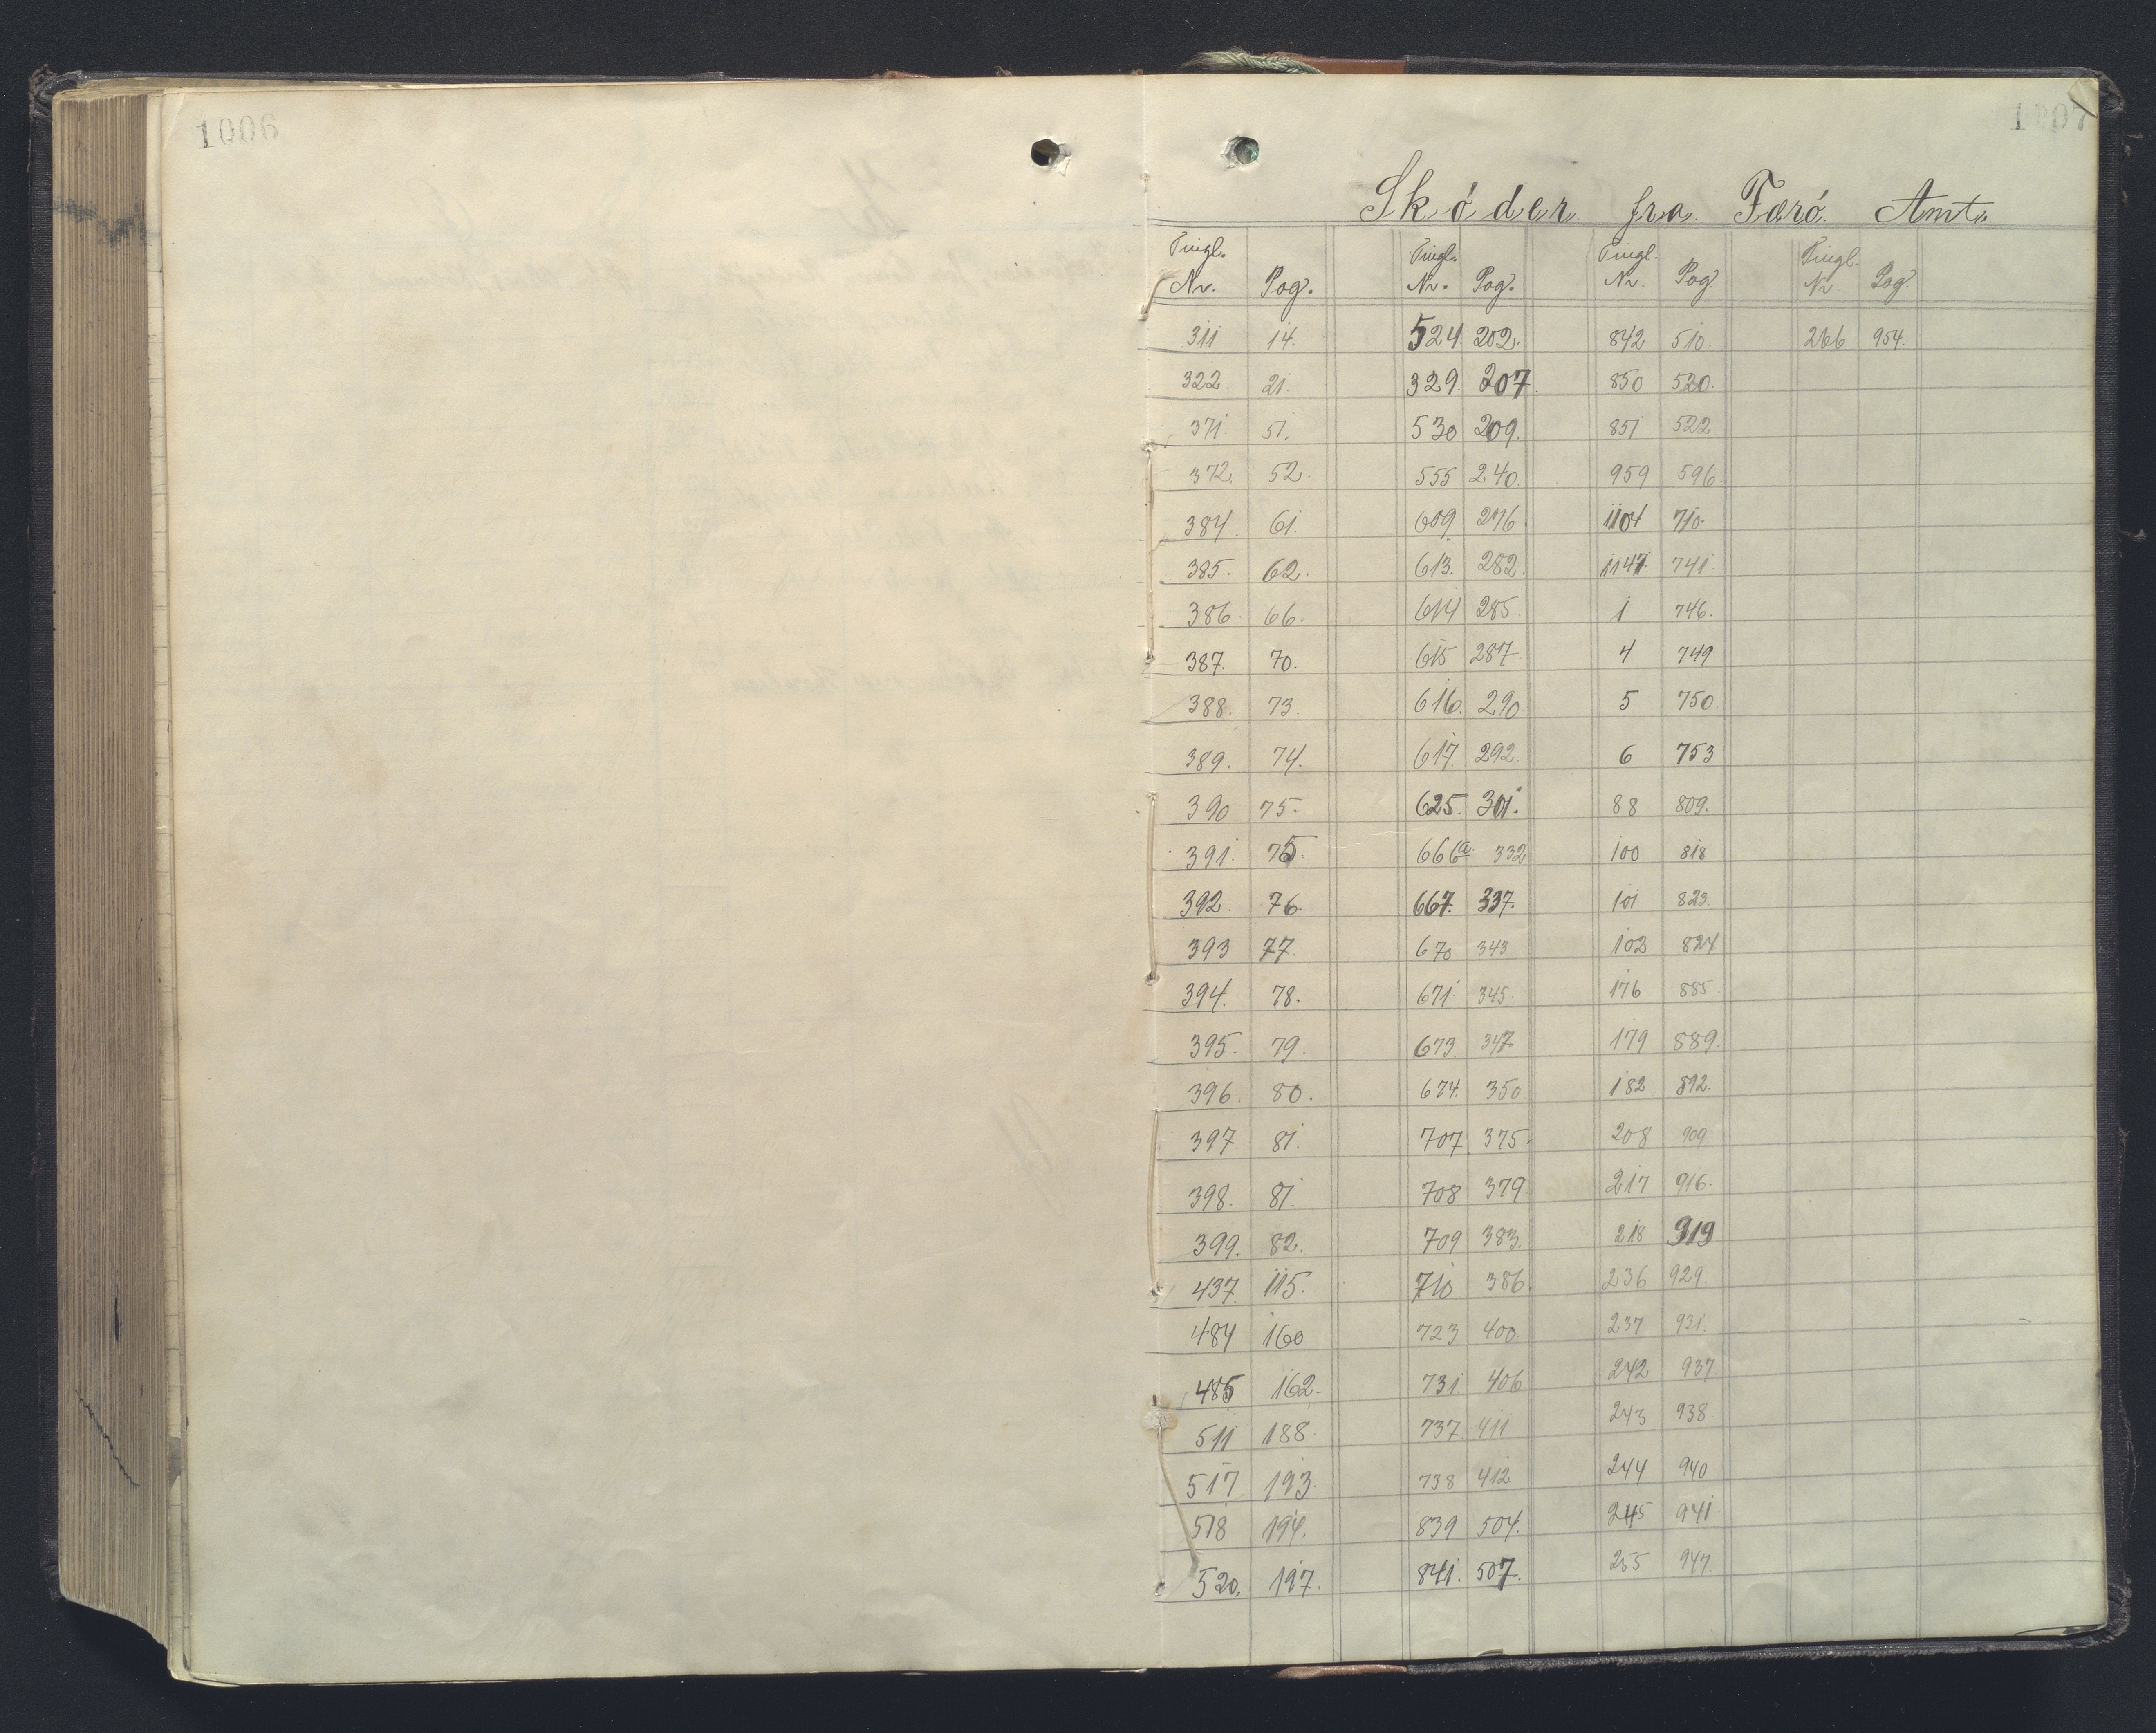 1006
1007
Skóder fra Færó Amt.
Tingl. Nr. Pag. Tingl. Nr. Pag. Tingl. Nr. Pag. Tingl. Nr. Pag.
311 14. 524. 202. 842 510. 266 954.
322. 21. 329. 207. 850 520.
371. 51. 530 209. 851 522
372. 52. 555 240. 959 596.
384. 61. 609 276 1104 710.
385. 62. 613. 282. 1147. 741.
386. 66. 614 285. 1 746.
387. 70. 615 287 4 749
388. 73. 616. 290 5 750
389. 74. 617. 292. 6 753
390 75. 625. 301. 88 809.
391. 75. 666a. 332 100 818
392. 76. 667. 337. 101 823.
393 77. 670 343 102 824
394. 78. 671 345. 176 885.
395. 79. 673. 347 179 889.
396. 80. 674. 350. 182 892.
397. 81. 707. 375. 208 909
398. 81. 708 379 217 916.
399. 82. 709 383. 218 919
437. 115. 710 386. 236 929.
484 160 723 400 237 931.
485 162. 731. 406 242 937
511 188. 737 411 243 938
517 193. 738 412 244 940
518 194. 839 504. 245 941
520. 197. 841. 507. 255 947.